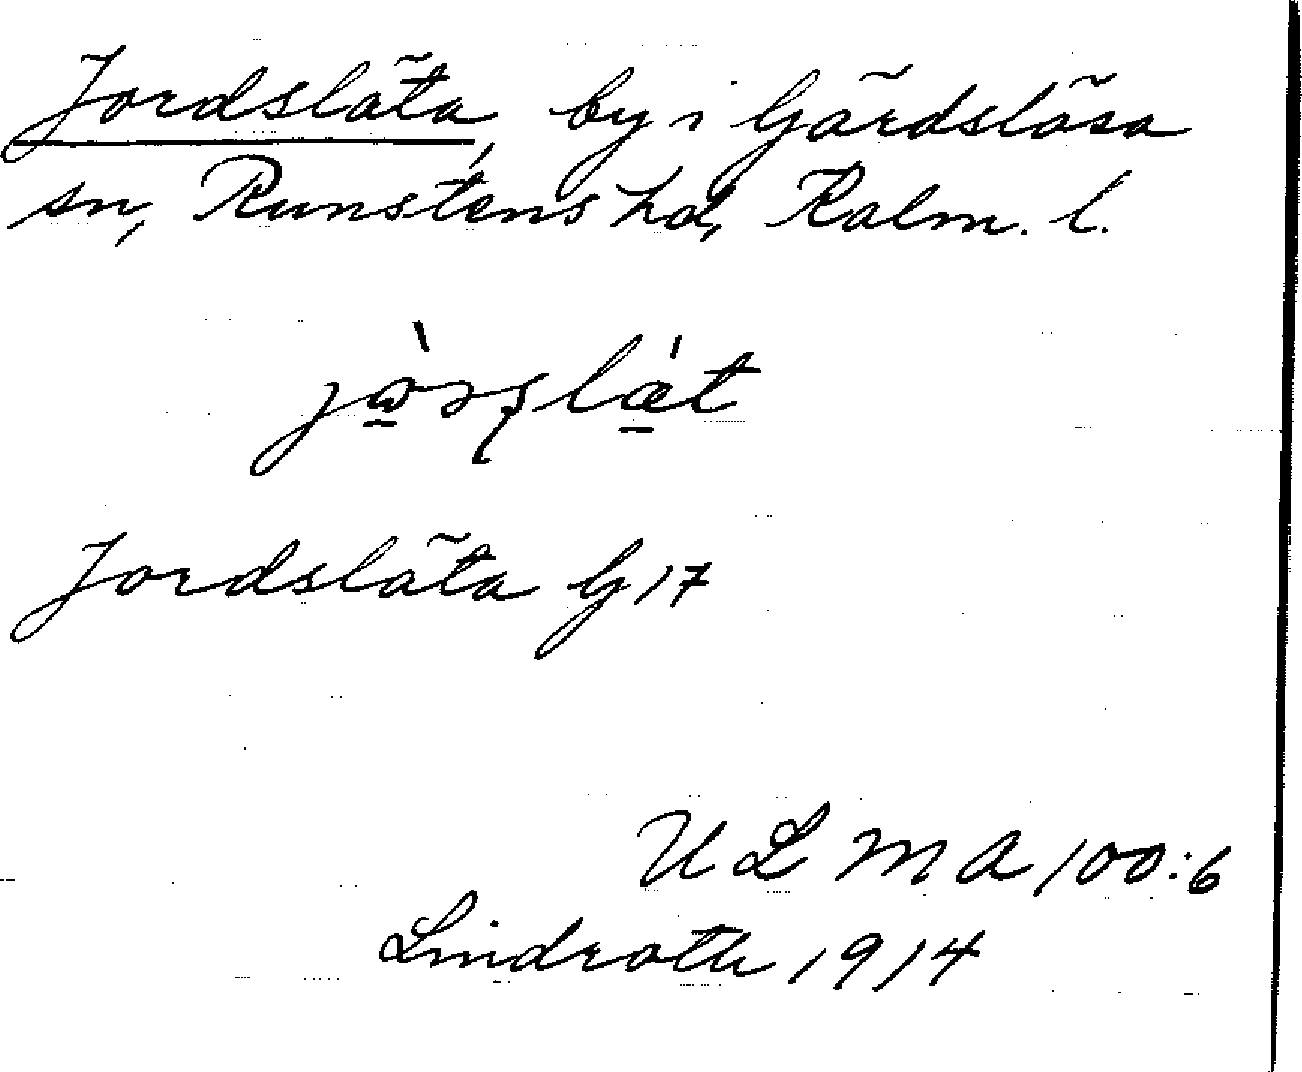 Jordsläta, by i Gärdslösa
sn, Runstens hd, Kalm. l.
Jordsläta G 17
U L M A 100:6
Lindroth 1914